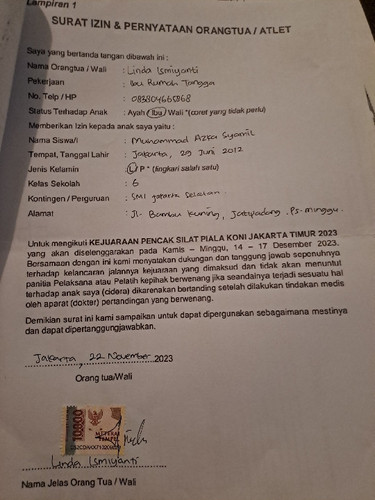 Lampiran 1
SURAT IZIN & PERNYATAAN ORANGTUA / ATLET
Saya yang bertanda tangan dibawah ini :
Nama Orangtua / Wali : Linda Ismiyanti
Pekerjaan : Ibu Rumah Tangga
No. Telp / HP : 083804665868
Status Terhadap Anak : Ayah / Ibu / Wali *(coret yang tidak perlu)
Memberikan Izin kepada anak saya yaitu :
Nama Siswa/i : Muhammad Azka Syamil
Tempat, Tanggal Lahir : Jakarta, 29 Juni 2012
Jenis Kelamin : L / P * (lingkari salah satu)
Kelas Sekolah : 6
Kontingen / Perguruan : SMI Jakarta Selatan.
Alamat : Jl. Bambu Kuning, Jatipadang. Ps. Minggu.
Untuk mengikuti KEJUARAAN PENCAK SILAT PIALA KONI JAKARTA TIMUR 2023
yang akan diselenggarakan pada Kamis – Minggu, 14 – 17 Desember 2023.
Bersamaan dengan ini kami menyatakan dukungan dan tanggung jawab sepenuhnya
terhadap kelancaran jalannya kejuaraan yang dimaksud dan tidak akan menuntut
panitia Pelaksana atau Pelatih kepihak berwenang jika seandainya terjadi sesuatu hal
terhadap anak saya (cidera) dikarenakan bertanding setelah dilakukan tindakan medis
oleh aparat (dokter) pertandingan yang berwenang.
Demikian surat ini kami sampaikan untuk dapat dipergunakan sebagaimana mestinya
dan dapat dipertanggungjawabkan.
Jakarta, 22 November 2023
Orang tua/Wali
10000
METERAI
TEMPEL
Linda Ismiyanti
Nama Jelas Orang Tua / Wali